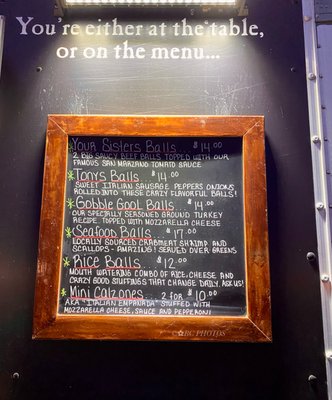 You're either at the table,
or on the menu...
Your Sisters Balls $14.00
2 Big Saucy Beef Balls topped with our
famous San Marzano Tomato Sauce
Tonys Balls $14.00
Sweet Italian Sausage Peppers Onions
rolled into these crazy flavorful balls!
Gobble Gool Balls $14.00
Our specially seasoned ground turkey
recipe topped with mozzarella cheese
Seafood Balls $17.00
Locally sourced crabmeat shrimp and
scallops - amazing! Served over greens
Rice Balls $12.00
Mouth watering combo of rice, cheese and
crazy good stuffings that change daily. Ask us!
Mini Calzones... 2 for $10.00
AKA "Italian Empanada" stuffed with
mozzarella cheese, sauce and pepperoni
BC PHOTOS